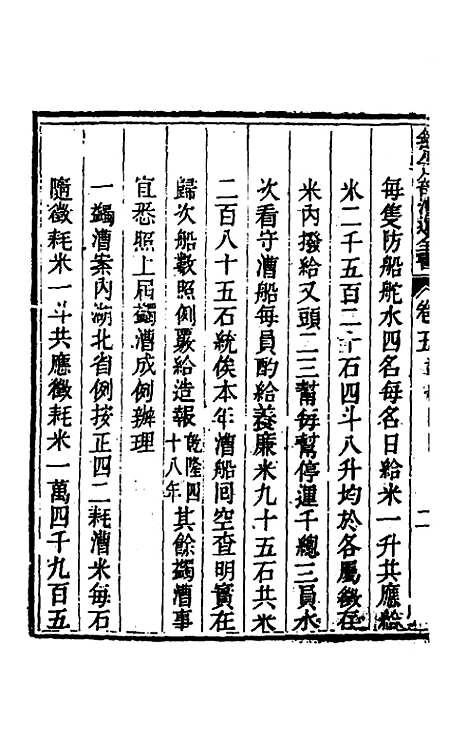 漕運全書 卷五
每隻防船舵水四名每名日給米一升共應給
米二千五百二十石四斗八升均於各屬徵存
米內撥給又頭二三幫每幫停運千總三員水
次看守漕船每員酌給養廉米九十五石共米
二百八十五石統俟本年漕船回空查明實在
歸次船數照例覈給造報乾隆四十八年其餘蠲漕事
宜悉照上屆蠲漕成例辦理
一蠲漕案內湖北省例按正四二耗漕米每石
隨徵耗米一斗共應徵耗米一萬四千九百五